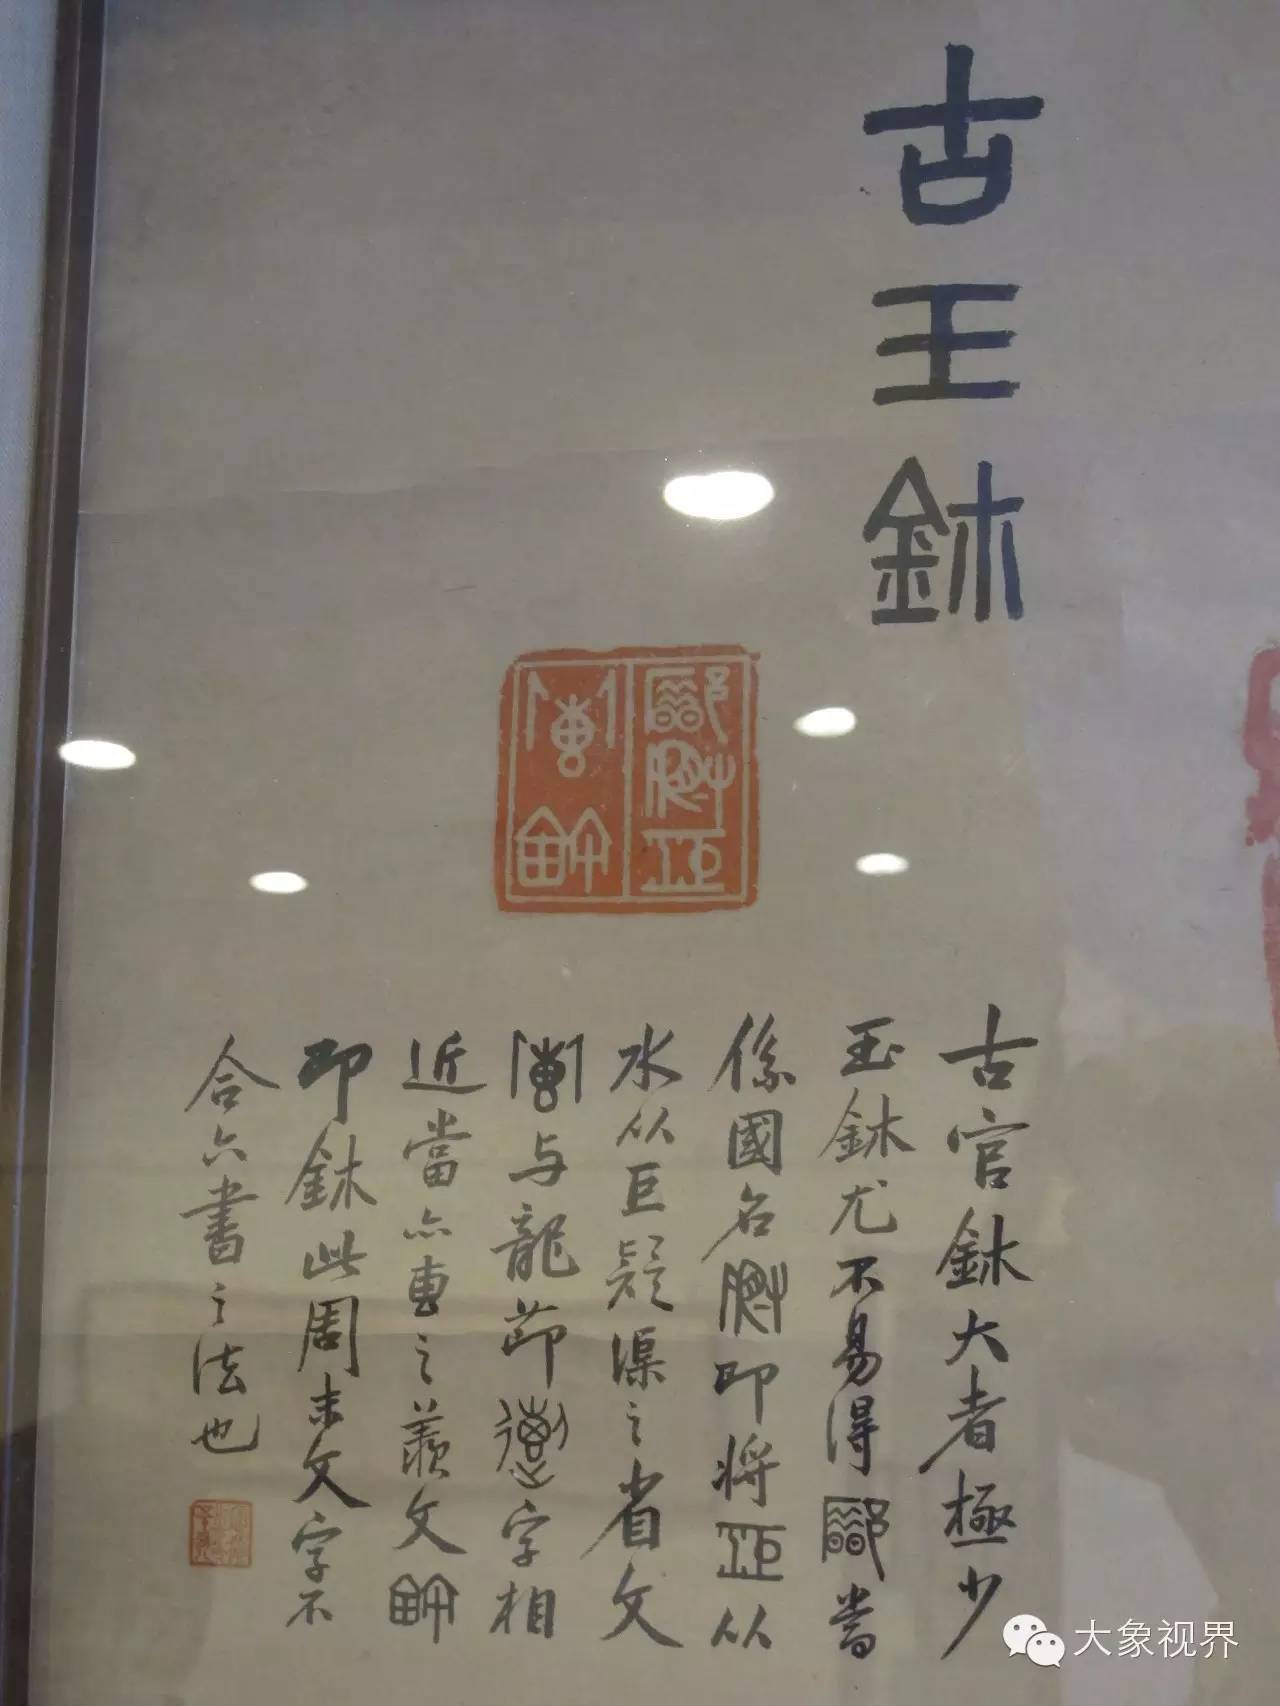 古王鉨
古官鉨大者極少
玉鉨尤不易得當
係國名即將从
水从巨疑渠之省文
与龍節字相
近當亦專之羨文
即鉨此周末文字不
合六書之法也
大象视界